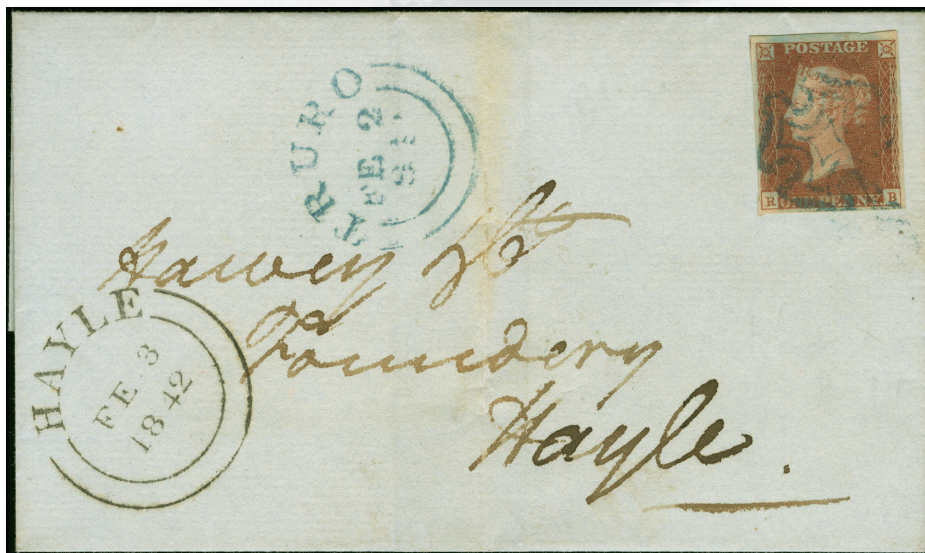 POSTAGE
R ONE PENNY B
TRURO
FE 2
Harvey & Co
Foundery
Hayle.
HAYLE
FE 3
1842